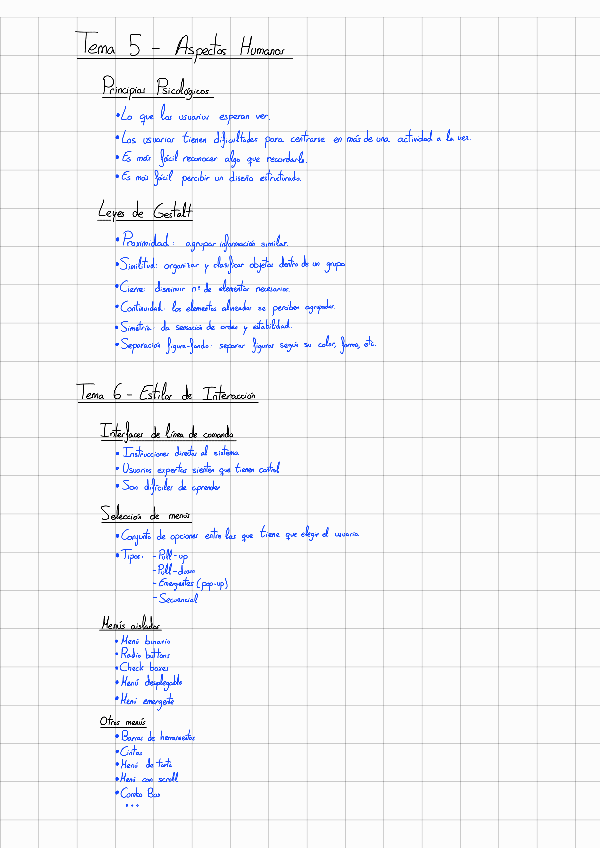 Tema 5 - Aspectos Humanos
Principios Psicológicos
• Lo que los usuarios esperan ver.
• Los usuarios tienen dificultades para centrarse en más de una actividad a la vez.
• Es más fácil reconocer algo que recordarlo.
• Es más fácil percibir un diseño estructurado.
Leyes de Gestalt
• Proximidad: agrupar información similar.
• Similitud: organizar y clasificar objetos dentro de un grupo
• Cierre: disminuir nº de elementos necesarios.
• Continuidad: los elementos alineados se perciben agrupados.
• Simetría: da sensación de orden y estabilidad.
• Separación figura-fondo: separar figuras según su color, forma, etc.
Tema 6 - Estilos de Interacción
Interfaces de línea de comando
• Instrucciones directas al sistema
• Usuarios expertos sienten que tienen control
• Son difíciles de aprender
Selección de menús
• Conjunto de opciones entre las que tiene que elegir el usuario
• Tipos: - Pull-up
- Pull-down
- Emergentes (pop-up)
- Secuencial
Menús aislados
• Menú binario
• Radio buttons
• Check boxes
• Menú desplegable
• Menú emergente
Otros menús
• Barras de herramientas
• Cintas
• Menú de tarta
• Menú con scroll
• Combo Box
...